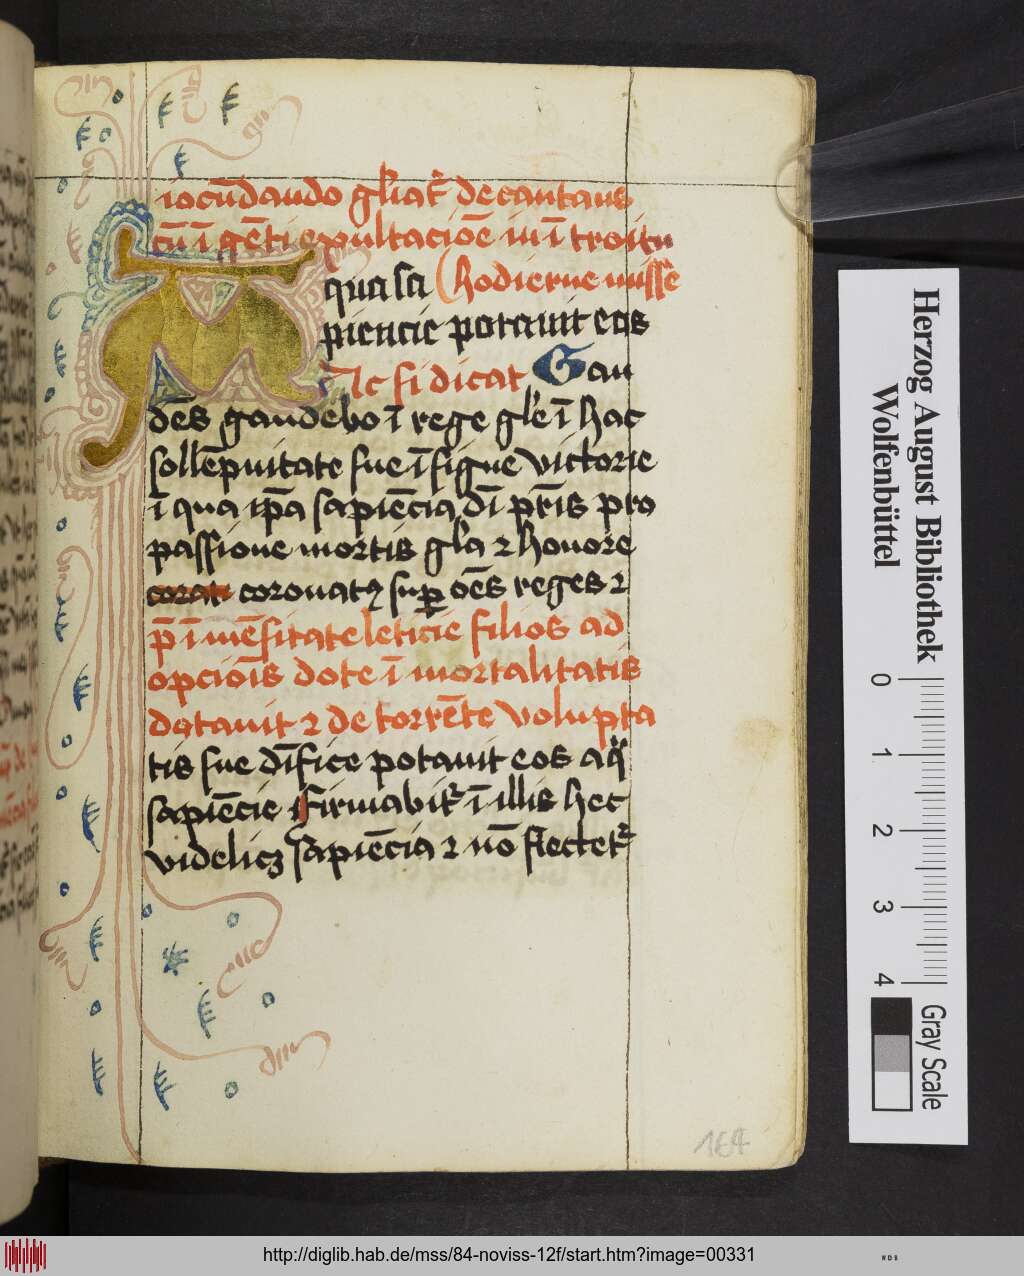 iocūdando gl'iat᷑ decantans
cū ī gēti exultacōe in ītroitu
A qua sa hodierne missē
piencie potauit eos
Ac si dicat Gau
dēs gaudebo ī rege gl'e ī hac
sollēpnitate sue īsigne victorie
ī qua ip̄a sapiēcia dī pr̄is pro
passione mortis gl'a ⁊ honore
corat coronatꝰ sup oēs reges ⁊
p̄ īmēsitate leticie filios ad
opciōis dote ī mortalitatis
dotauit ⁊ de torrēte volupta
tis sue dīfice potauit eos aq̄
sapiēcie firmabit᷑ ī illis hec
videlicꝫ sapiēcia ⁊ nō flectet᷑
164
Herzog August Bibliothek
Wolfenbüttel
0 1 2 3 4
Gray Scale
http://diglib.hab.de/mss/84-noviss-12f/start.htm?image=00331